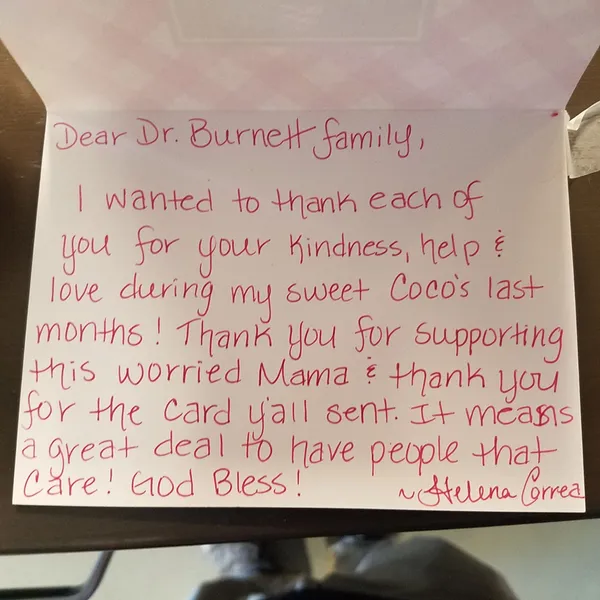 Dear Dr. Burnett family,
I wanted to thank each of
you for your kindness, help &
love during my sweet Coco's last
months! Thank you for supporting
this worried Mama & thank you
for the card y'all sent. It means
a great deal to have people that
care! God Bless!
~Helena Correa